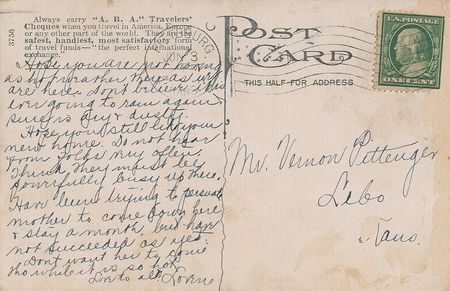 3756
Always carry "A. B. A." Travelers'
Cheques when you travel in America, Europe
or any other part of the world. They are the
safest, handiest, most satisfactory form
of travel funds—"the perfect international
exchange."
POST CARD
THIS HALF FOR ADDRESS
U.S. POSTAGE
ONE CENT
Hope you are not having
as hot weather there as we
are here. Don't believe it is
ever going to rain again
sure is dry & dusty.
Hope you still like your
new home. Do not hear
from folks very often
think they must be
powerfully busy up there.
Have been trying to persuade
mother to come down here
& stay a month but have
not succeeded as yet.
Dont want her to come
tho while it is so hot.
Love to all
Mr. Vernon Pittenger
Lebo
Kans.